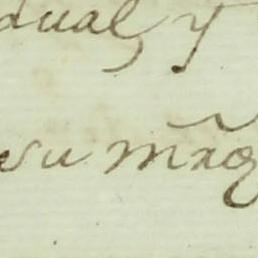 dual, y
su mr̃a